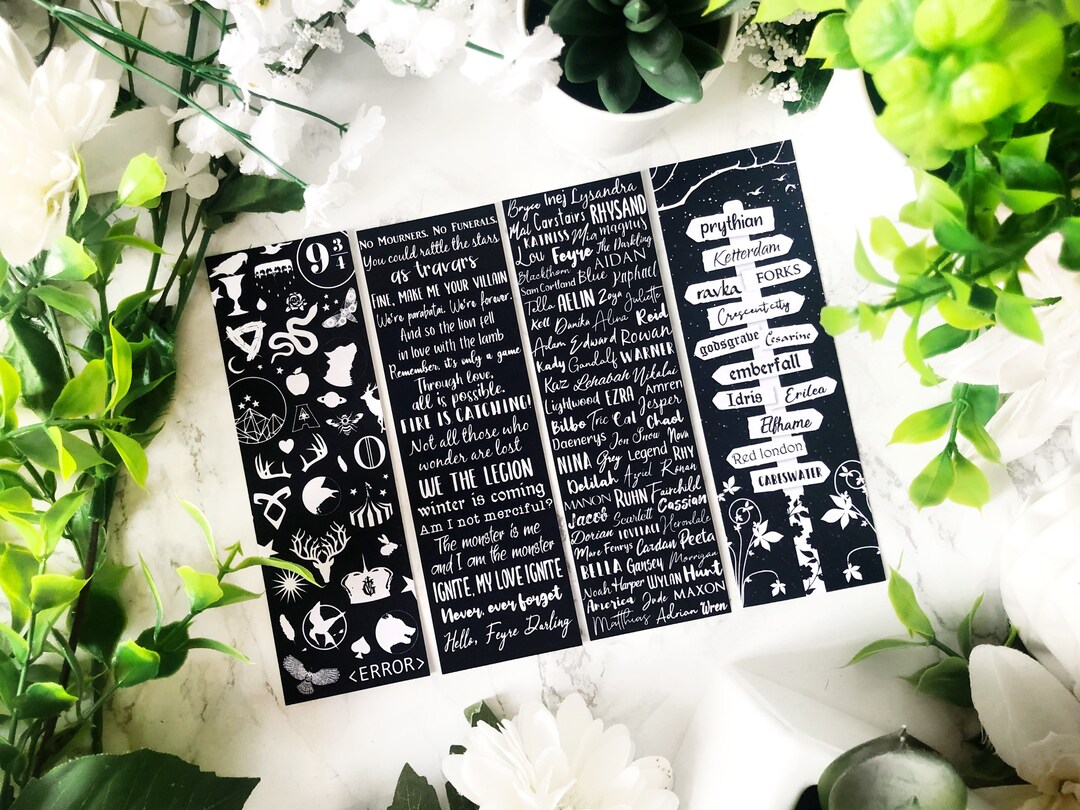 9 3/4
<ERROR>
No Mourners. No Funerals.
You could rattle the stars
as travars
FINE, MAKE ME YOUR VILLAIN
We're parabatai. We're forever.
And so the lion fell
in love with the lamb
Remember, it's only a game
Through love,
all is possible.
FIRE IS CATCHING!
Not all those who
wonder are lost
WE THE LEGION
winter is coming
Am I not merciful?
The monster is me
and I am the monster
IGNITE, MY LOVE IGNITE
Never, ever forget
Hello, Feyre Darling
Bryce Inej Lysandra
Mal Carstairs RHYSAND
KATNISS Mia magnus
Lou Feyre The Darkling
Blackthorn AIDAN
Sam Cortland Blue Raphael
Tella AELIN Zoya Juliette
Kell Danika Alina Reid
Adam Edward Rowan
Kady Gandalf WARNER
Kaz Lehabah Nikolai
Lightwood EZRA Amren
Bilbo Tric Cal Jesper
Daenerys Jon Snow Chaol
NINA Grey Legend Nova RHY
Delilah Azriel Ronan
MANON RUHN Fairchild
Jacob Scarlett Cassian
Dorian LOVEDALL Herondale
Marc Fenrys Cardan Peeta
BELLA Gansey Morrigan
Noah Harper WYLAN Hunt
America Jude MAXON
Matthias Adrian Wren
prythian
Ketterdam
FORKS
ravka
Crescent city
godsgrave Cesarine
emberfall
Idris Erilea
Elfhame
Red london
CABESWATER